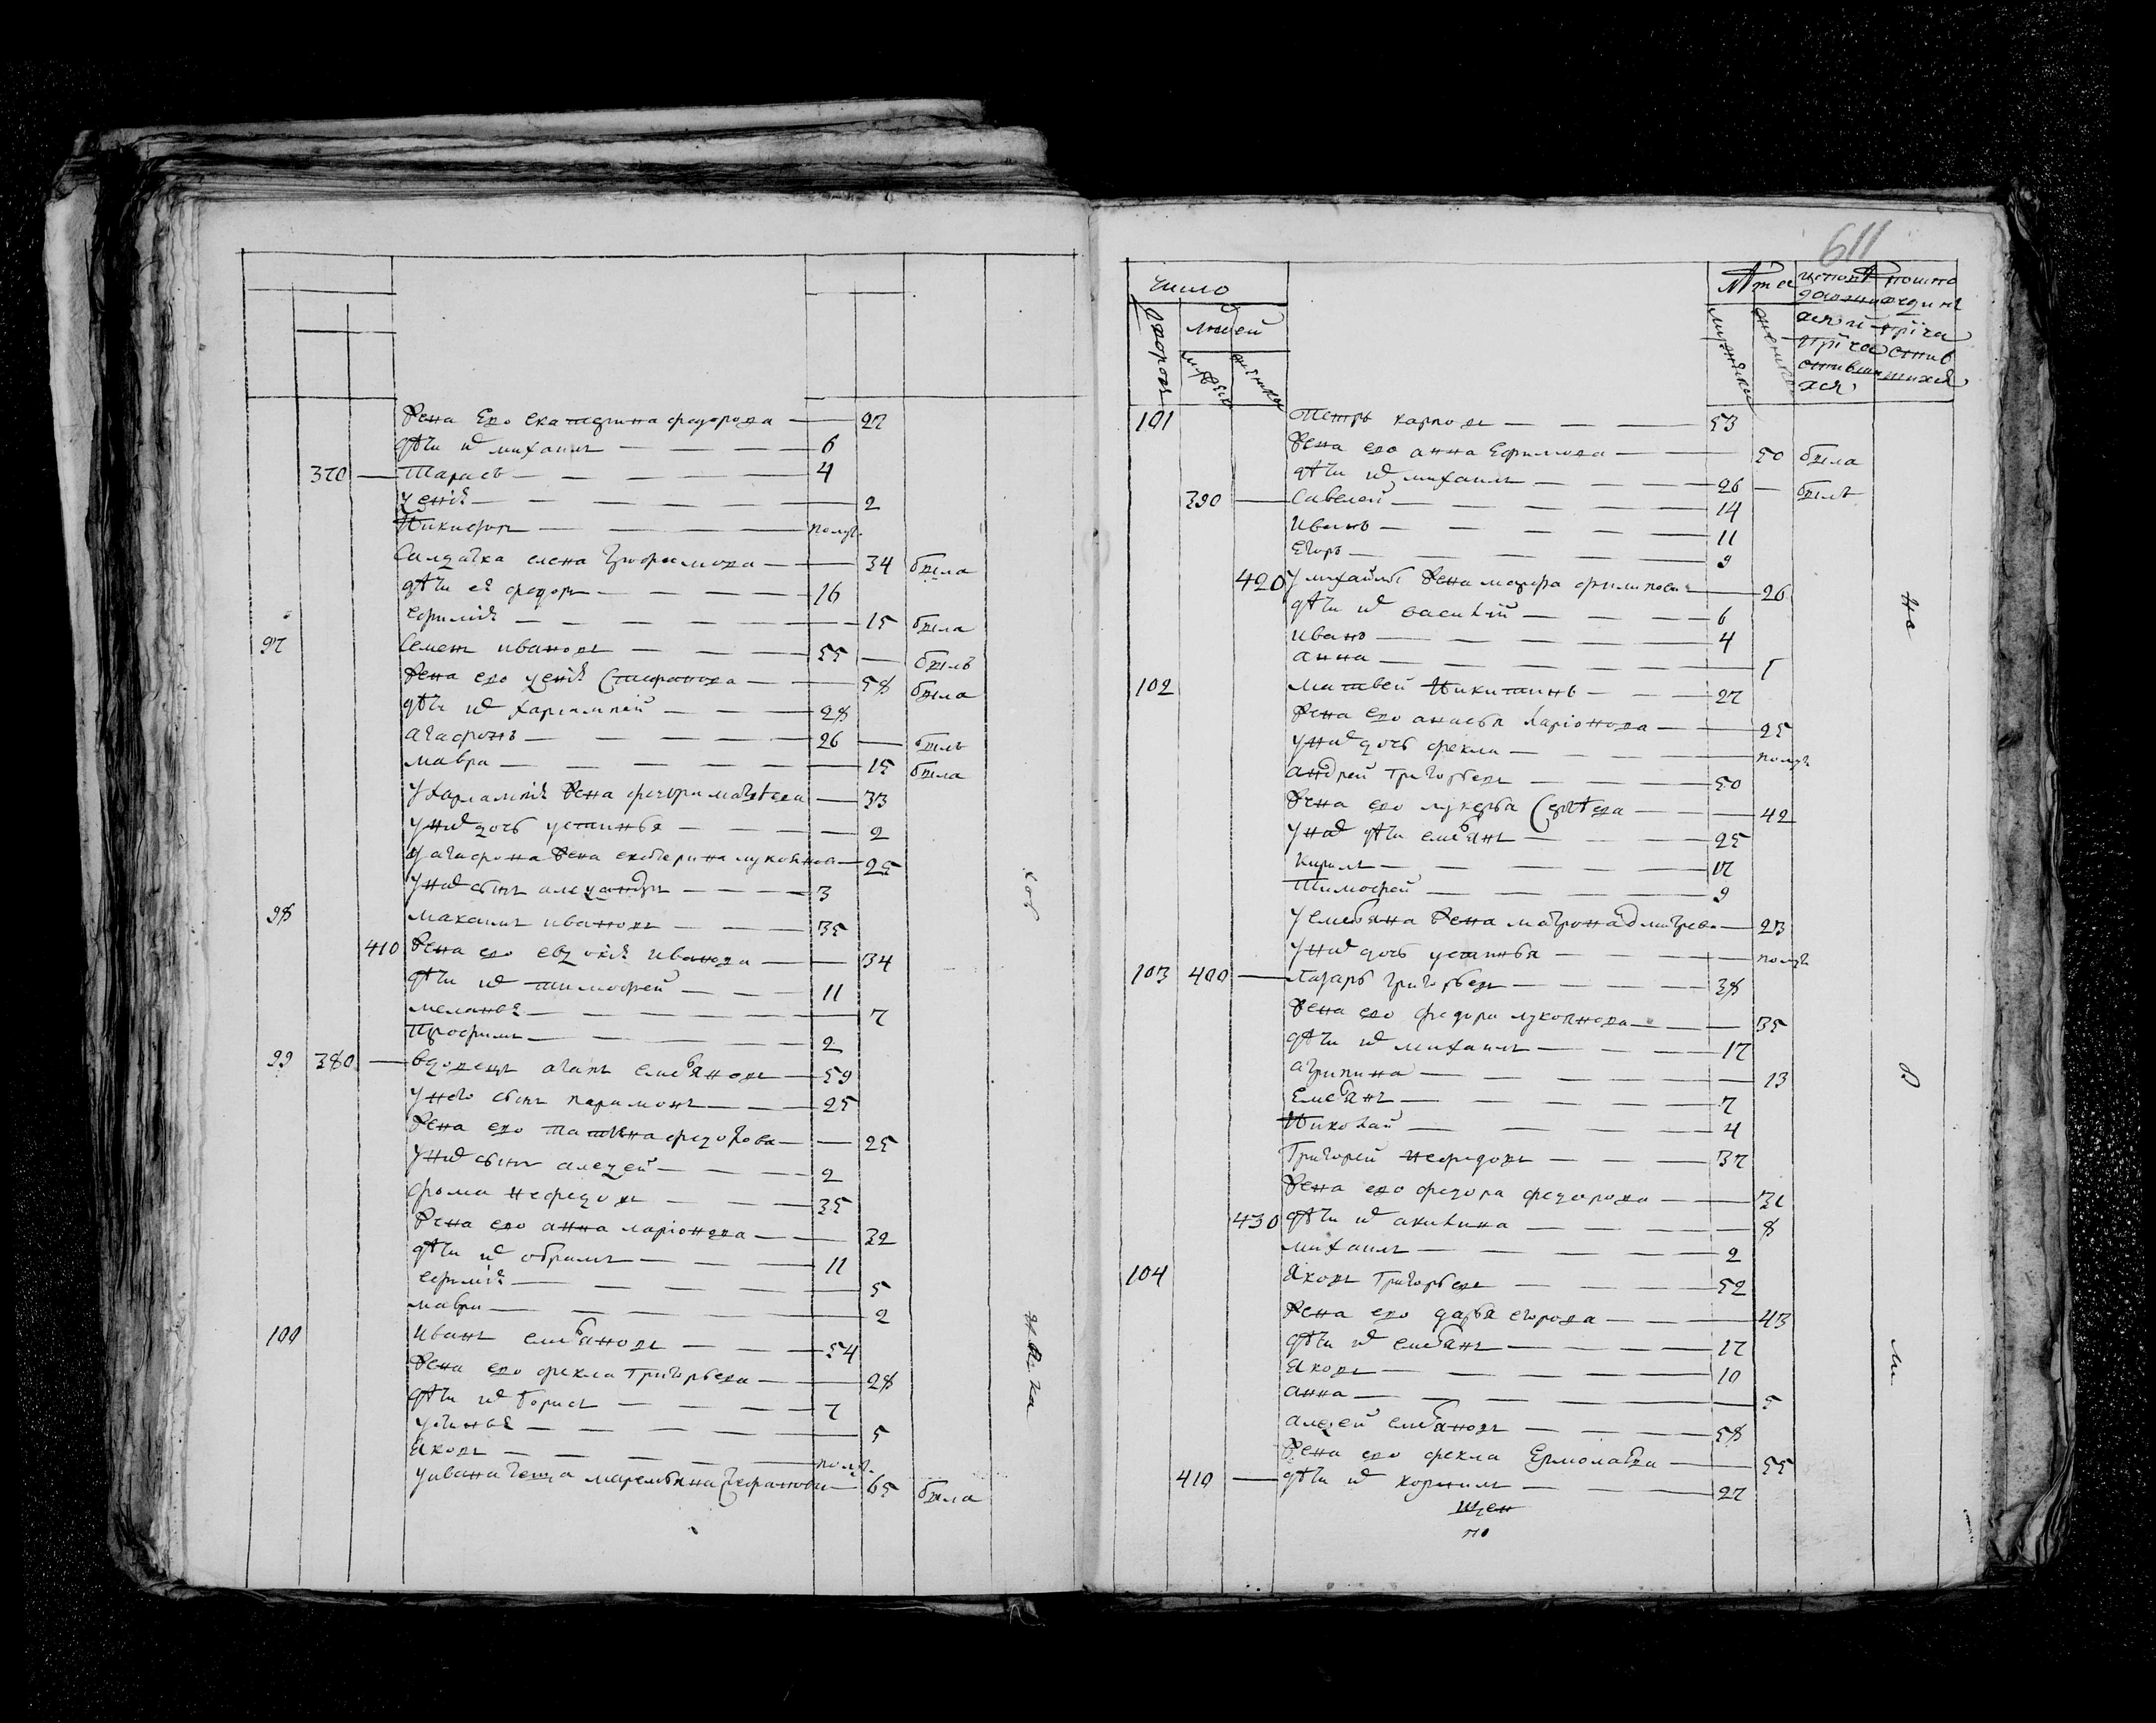 Жена его екатерина федорова — 27
дѣти их михаилъ — 6
370 — Тарасъ — 4
Ксенiя — 2
Никифоръ — полуг.
Салдатка елена Трофимова — 34 была
дѣти ея федоръ — 16
ефимiя — 15 была
97 Семенъ ивановъ — 55 — былъ
Жена его ксенiя Стефанова — 58 была
дѣти их харлампей — 28
агафонъ — 26 — былъ
мавра — 15 была
У харлампiя жена федора матвѣева — 33
У них дочь устинья — 2
У агафона жена екатерина лукоянова — 25
У них сынъ александръ — 3
98 максимъ ивановъ — 35
410 Жена его евдокiя иванова — 34
дѣти их тимофей — 11
меланья — 7
Трофимъ — 2
99 380 — вдовецъ агапъ емельяновъ — 59
У него сынъ парамонъ — 25
Жена его татьяна федорова — 25
У них сынъ алексей — 2
фома нефедовъ — 35
Жена его анна ларiонова — 32
дѣти их абрамъ — 11
ефимiя — 5
мавра — 2
100 иванъ емельяновъ — 54
Жена его фекла Григорьева — 28
дѣти их борисъ — 7
устинья — 5
Яковъ — полуг.
У ивана теща маремьяна Стефанова — 65 была
611
число
дворовъ
людей
мужеск
женска
Лѣта
мужеска
женска
101 Петръ карповъ — 53
Жена его анна Ефимова — 50 была
дѣти их михаилъ — 26 — былъ
390 — Савелей — 14
Иванъ — 11
Егоръ — 9
420 У михайлы жена марфа филипова — 26
дѣти их василий — 6
иванъ — 4
анна — 1
102 матвей Никитинъ — 27
Жена его анисья ларiонова — 25
У них дочь фекла — полуг
андрей Григорьевъ — 50
Жена его лукерья Сергѣева — 42
У них дѣти емельянъ — 25
Кирилъ — 17
Тимофей — 9
У емельяна жена матрона дмитрева — 23
У них дочь устинья — полуг
103 400 — Лазарь григорьевъ — 38
Жена его федора лукоянова — 35
дѣти их михаилъ — 17
агрипина — 13
Емельянъ — 7
Николай — 4
Григорей нефедовъ — 37
Жена его федора федорова — 31
430 дѣти их акилина — 8
михаилъ — 2
104 Яковъ Григорьевъ — 52
Жена его дарья егорова — 43
дѣти их емельянъ — 17
Яковъ — 10
анна — 5
алексей емельяновъ — 58
Жена его фекла Ермолаева — 55
410 — дѣти их корнилъ — 27